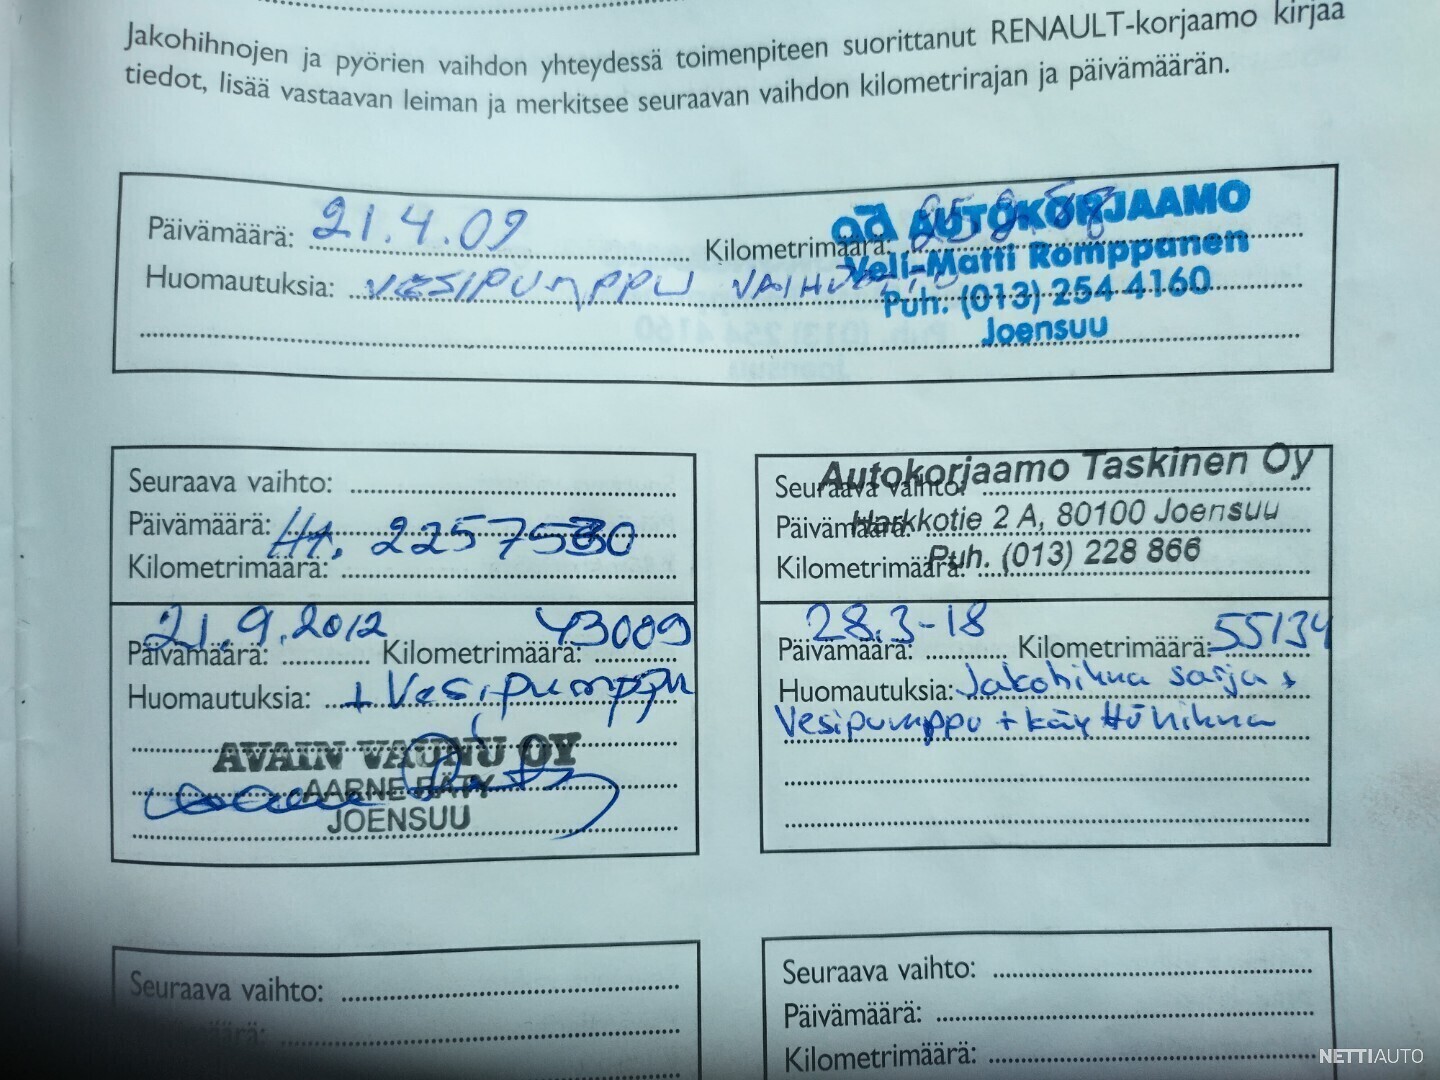 Jakohihnojen ja pyörien vaihdon yhteydessä toimenpiteen suorittanut RENAULT-korjaamo kirjaa
tiedot, lisää vastaavan leiman ja merkitsee seuraavan vaihdon kilometrirajan ja päivämäärän.
Päivämäärä: 21.4.09 Kilometrimäärä:
ad AUTOKORJAAMO
Veli-Matti Romppanen
Puh. (013) 254 4160
Joensuu
Huomautuksia: VESIPUMPPU
Seuraava vaihto:
Päivämäärä:
Kilometrimäärä:
21.9.2012 43009
Päivämäärä: Kilometrimäärä:
Huomautuksia: + Vesipumppu
AVAIN VAUNU OY
AARNE RÄTY
JOENSUU
Autokorjaamo Taskinen Oy
Seuraava vaihto:
Harkkotie 2 A, 80100 Joensuu
Päivämäärä:
Puh. (013) 228 866
Kilometrimäärä:
28.3-18 55134
Päivämäärä: Kilometrimäärä:
Huomautuksia: Jakohihna sarja +
Vesipumppu + käyttöhihna
Seuraava vaihto:
Seuraava vaihto:
Päivämäärä:
Kilometrimäärä:
NETTIAUTO